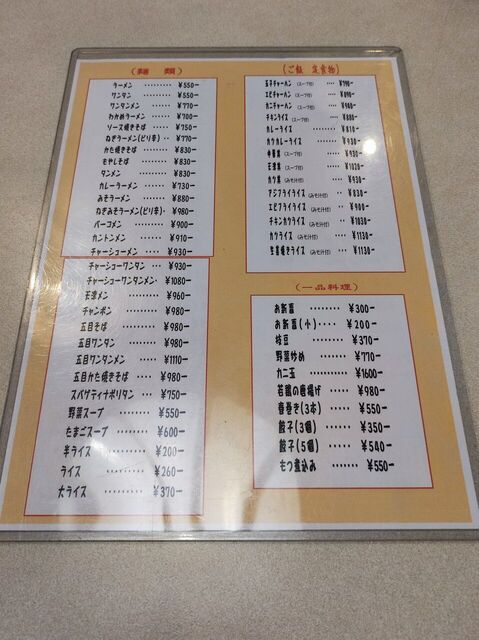 (麺 類)
ラーメン ········· ¥550−
ワンタン ········· ¥550−
ワンタンメン ······ ¥770−
わかめラーメン ···· ¥700−
ソース焼きそば ···· ¥750−
ねぎラーメン(ピリ辛)·· ¥770−
かた焼きそば ····· ¥830−
もやしそば ······· ¥830−
タンメン ········ ¥830−
カレーラーメン ···· ¥730−
みそラーメン ····· ¥880−
ねぎみそラーメン(ピリ辛)· ¥980−
パーコメン ······ ¥900−
カントンメン ····· ¥910−
チャーシューメン ··· ¥930−
チャーシューワンタン ·· ¥930−
チャーシューワンタンメン· ¥1080−
天津メン ······· ¥960−
チャンポン ······ ¥980−
五目そば ······· ¥980−
五目ワンタン ····· ¥980−
五目ワンタンメン ··· ¥1110−
五目かた焼きそば ··· ¥980−
スパゲティナポリタン ·· ¥750−
野菜スープ ······ ¥550−
たまごスープ ····· ¥600−
半ライス ······· ¥200−
ライス ········ ¥260−
大ライス ······· ¥370−
(ご飯 定食物)
玉子チャーハン (スープ付) ···· ¥790−
エビチャーハン (スープ付) ···· ¥890−
カニチャーハン (スープ付) ···· ¥980−
チキンライス (スープ付) ····· ¥880−
カレーライス ········ ¥810−
カツカレーライス ······ ¥930−
中華丼 (スープ付) ······· ¥930−
天津丼 (スープ付) ······· ¥1020−
カツ丼 (みそ汁付) ······· ¥930−
アジフライライス (みそ汁付) ·· ¥830−
エビフライライス (みそ汁付) ·· ¥1030−
チキンカツライス (みそ汁付) ·· ¥1030−
カツライス (みそ汁付) ····· ¥1130−
生姜焼きライス (みそ汁付) ··· ¥1130−
(一品料理)
お新香 ········ ¥300−
お新香(小)···· ¥200−
枝豆 ········· ¥370−
野菜炒め ······· ¥770−
カニ玉 ········ ¥1600−
若鶏の唐揚げ ···· ¥980−
春巻き(3本) ···· ¥550−
餃子(3個) ····· ¥350−
餃子(5個) ····· ¥540−
もつ煮込み ····· ¥550−